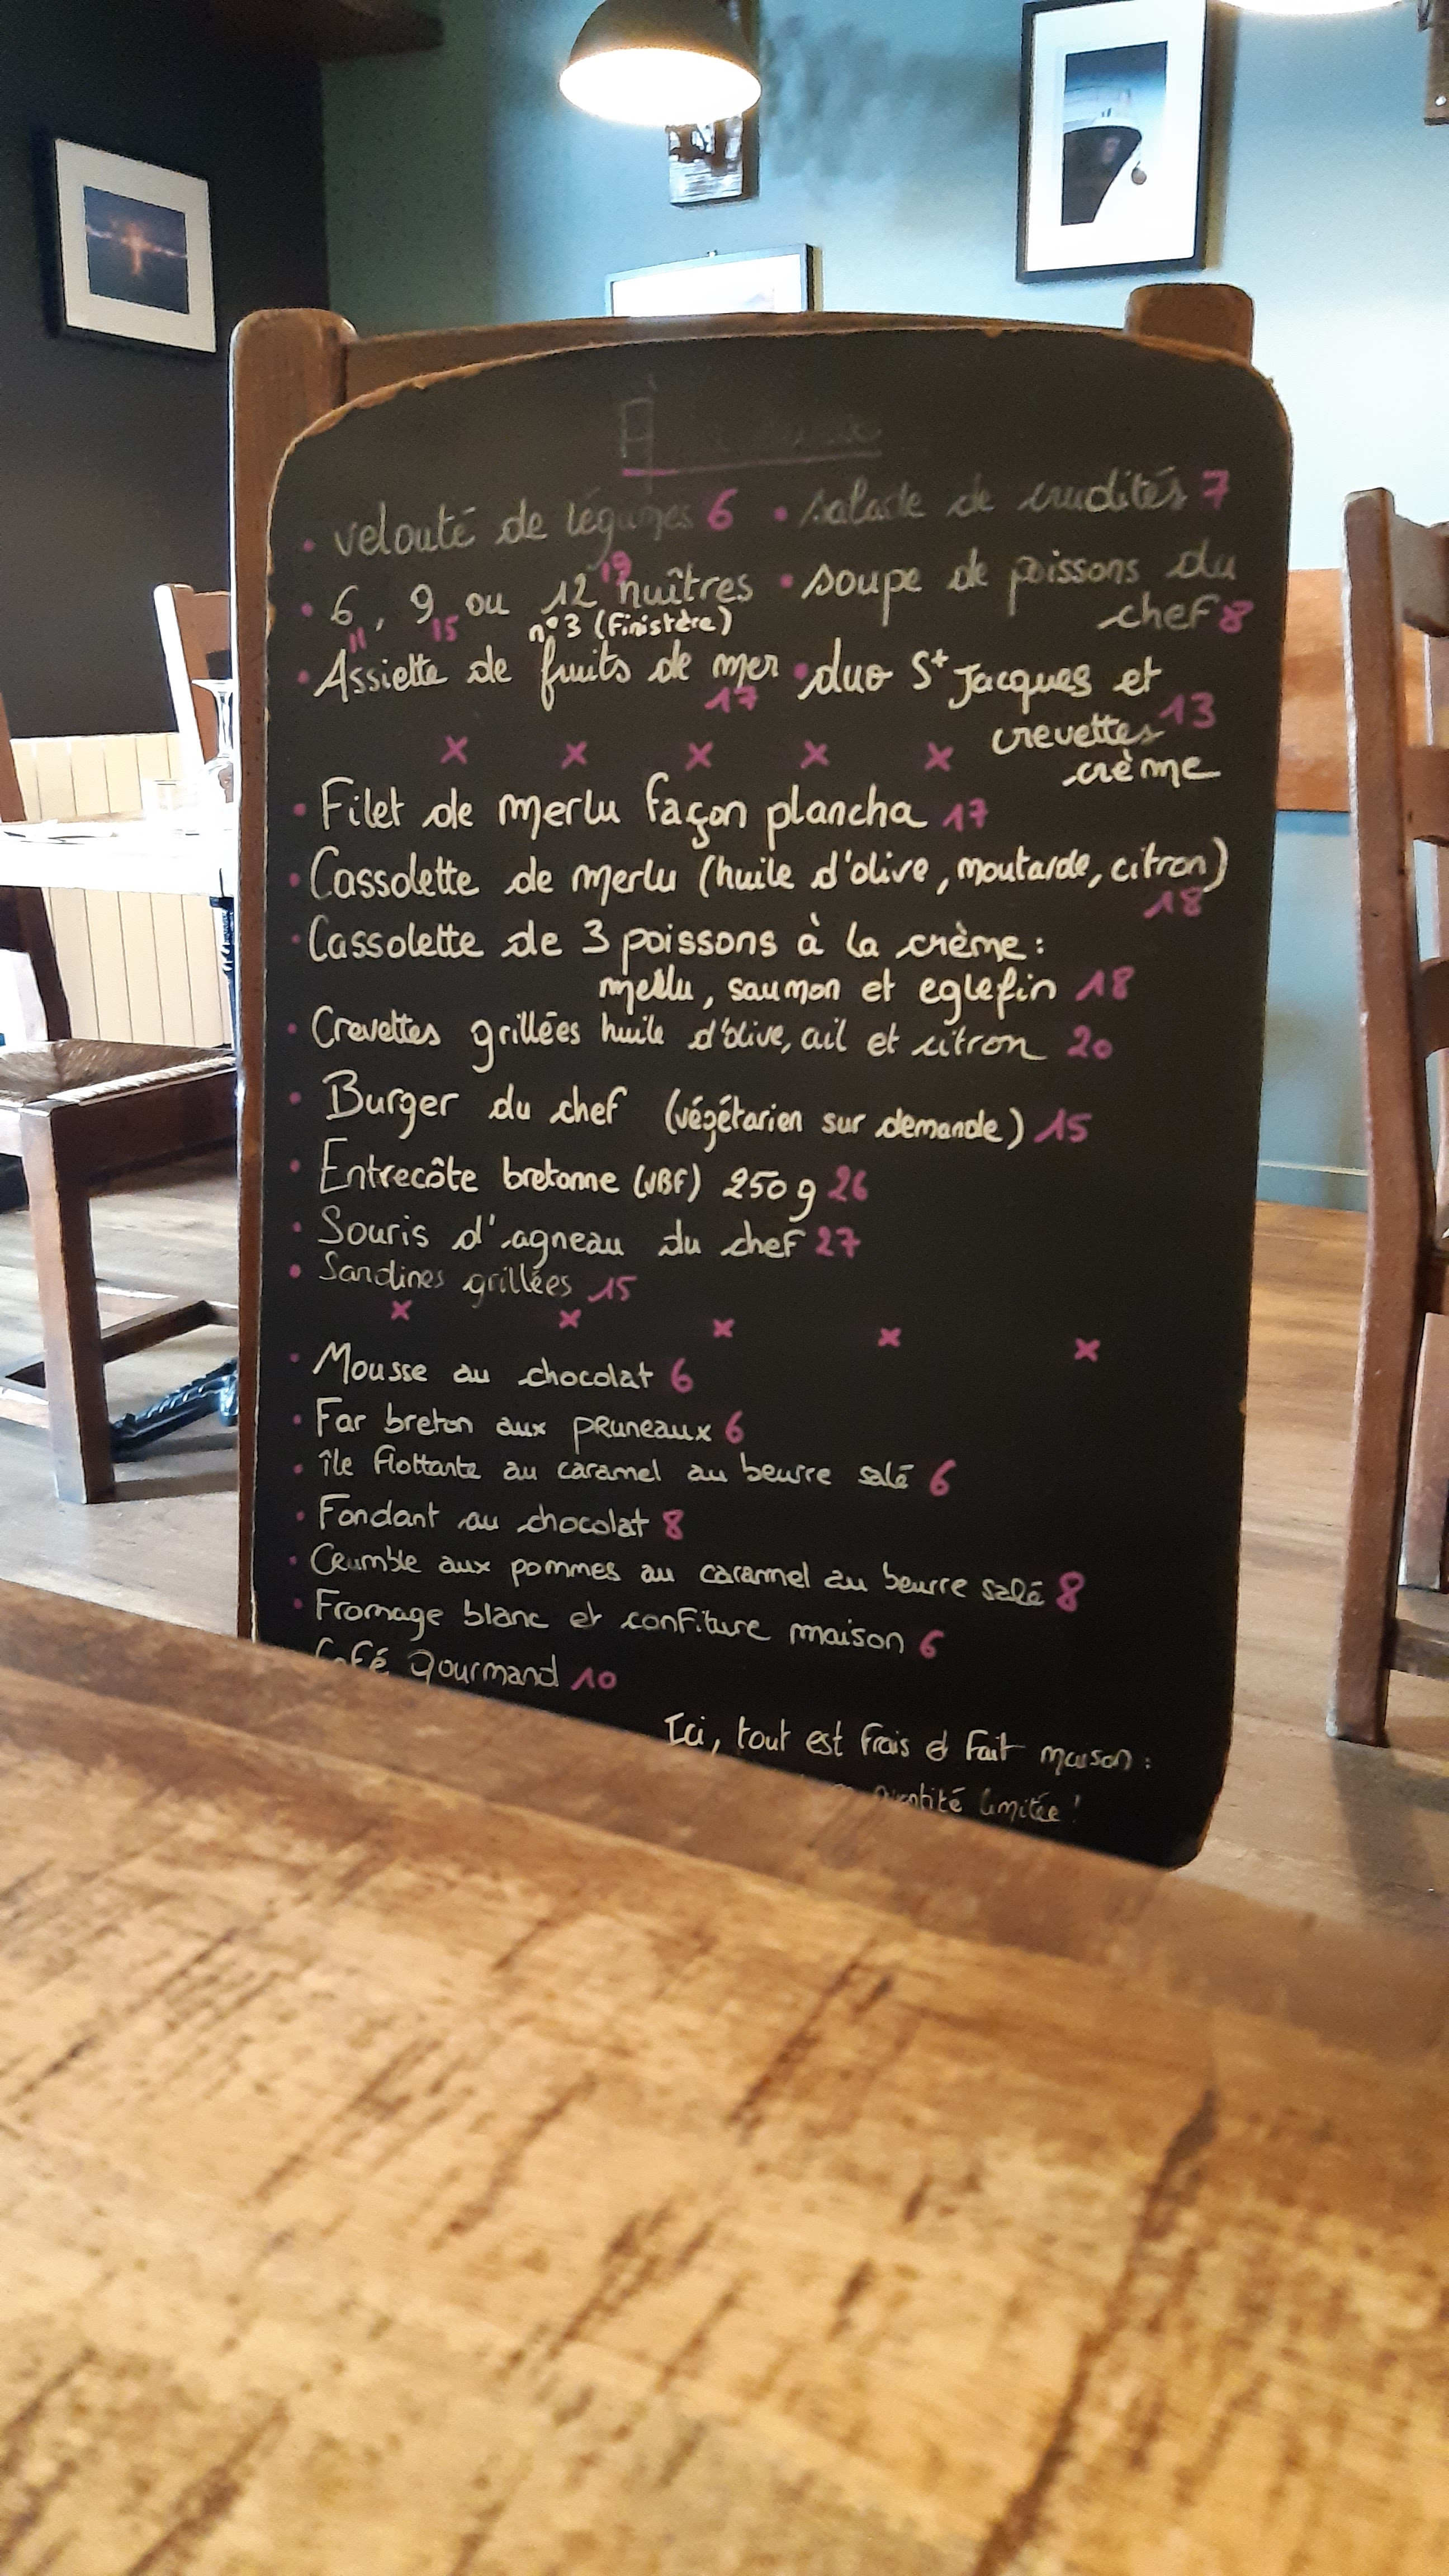 • velouté de légumes 6 • salade de crudités 7
• 6, 9 ou 12 huîtres • soupe de poissons du
11 15 19
n°3 (Finistère)
chef 8
• Assiette de fruits de mer • duo St Jacques et
17
crevettes 13
crème
x x x x x
• Filet de merlu façon plancha 17
• Cassolette de merlu (huile d'olive, moutarde, citron)
18
• Cassolette de 3 poissons à la crème :
merlu, saumon et eglefin 18
• Crevettes grillées huile d'olive, ail et citron 20
• Burger du chef (végétarien sur demande) 15
• Entrecôte bretonne (VBF) 250 g 26
• Souris d'agneau du chef 27
• Sardines grillées 15
x x x x x
• Mousse au chocolat 6
• Far breton aux pruneaux 6
• île flottante au caramel au beurre salé 6
• Fondant au chocolat 8
• Crumble aux pommes au caramel au beurre salé 8
• Fromage blanc et confiture maison 6
Café gourmand 10
Ici, tout est frais et fait maison :
quantité limitée !